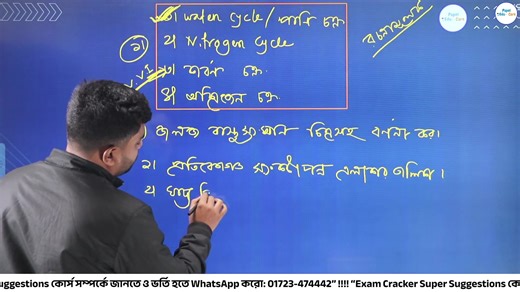 ১। water cycle / পানি চক্র
২। Nitrogen cycle
৩। কার্বন চক্র
৪। অক্সিজেন চক্র
রচনামূলক
V.V.I
১। জলজ বাস্তুসংস্থান চিত্রসহ বর্ণনা কর।
২। প্রতিবেশগত সংকটাপন্ন এলাকার তালিকা।
uggestions কোর্স সম্পর্কে জানতে ও ভর্তি হতে WhatsApp করো: 01723-474442" !!!! "Exam Cracker Super Suggestions কো